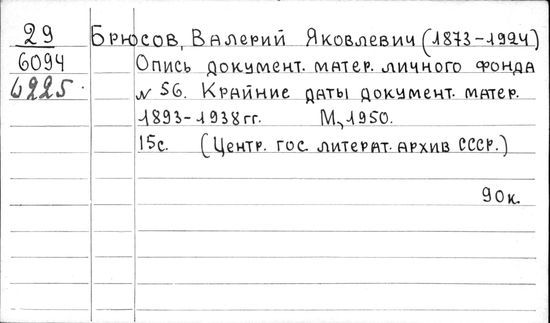 29 Брюсов, Валерий Яковлевич (1873-1924)
6094 Опись документ. матер. личного фонда
6225. N 56. Крайние даты документ. матер.
1893-1938 гг. М., 1950.
15с. (Центр. гос. литерат. архив СССР.)
90к.